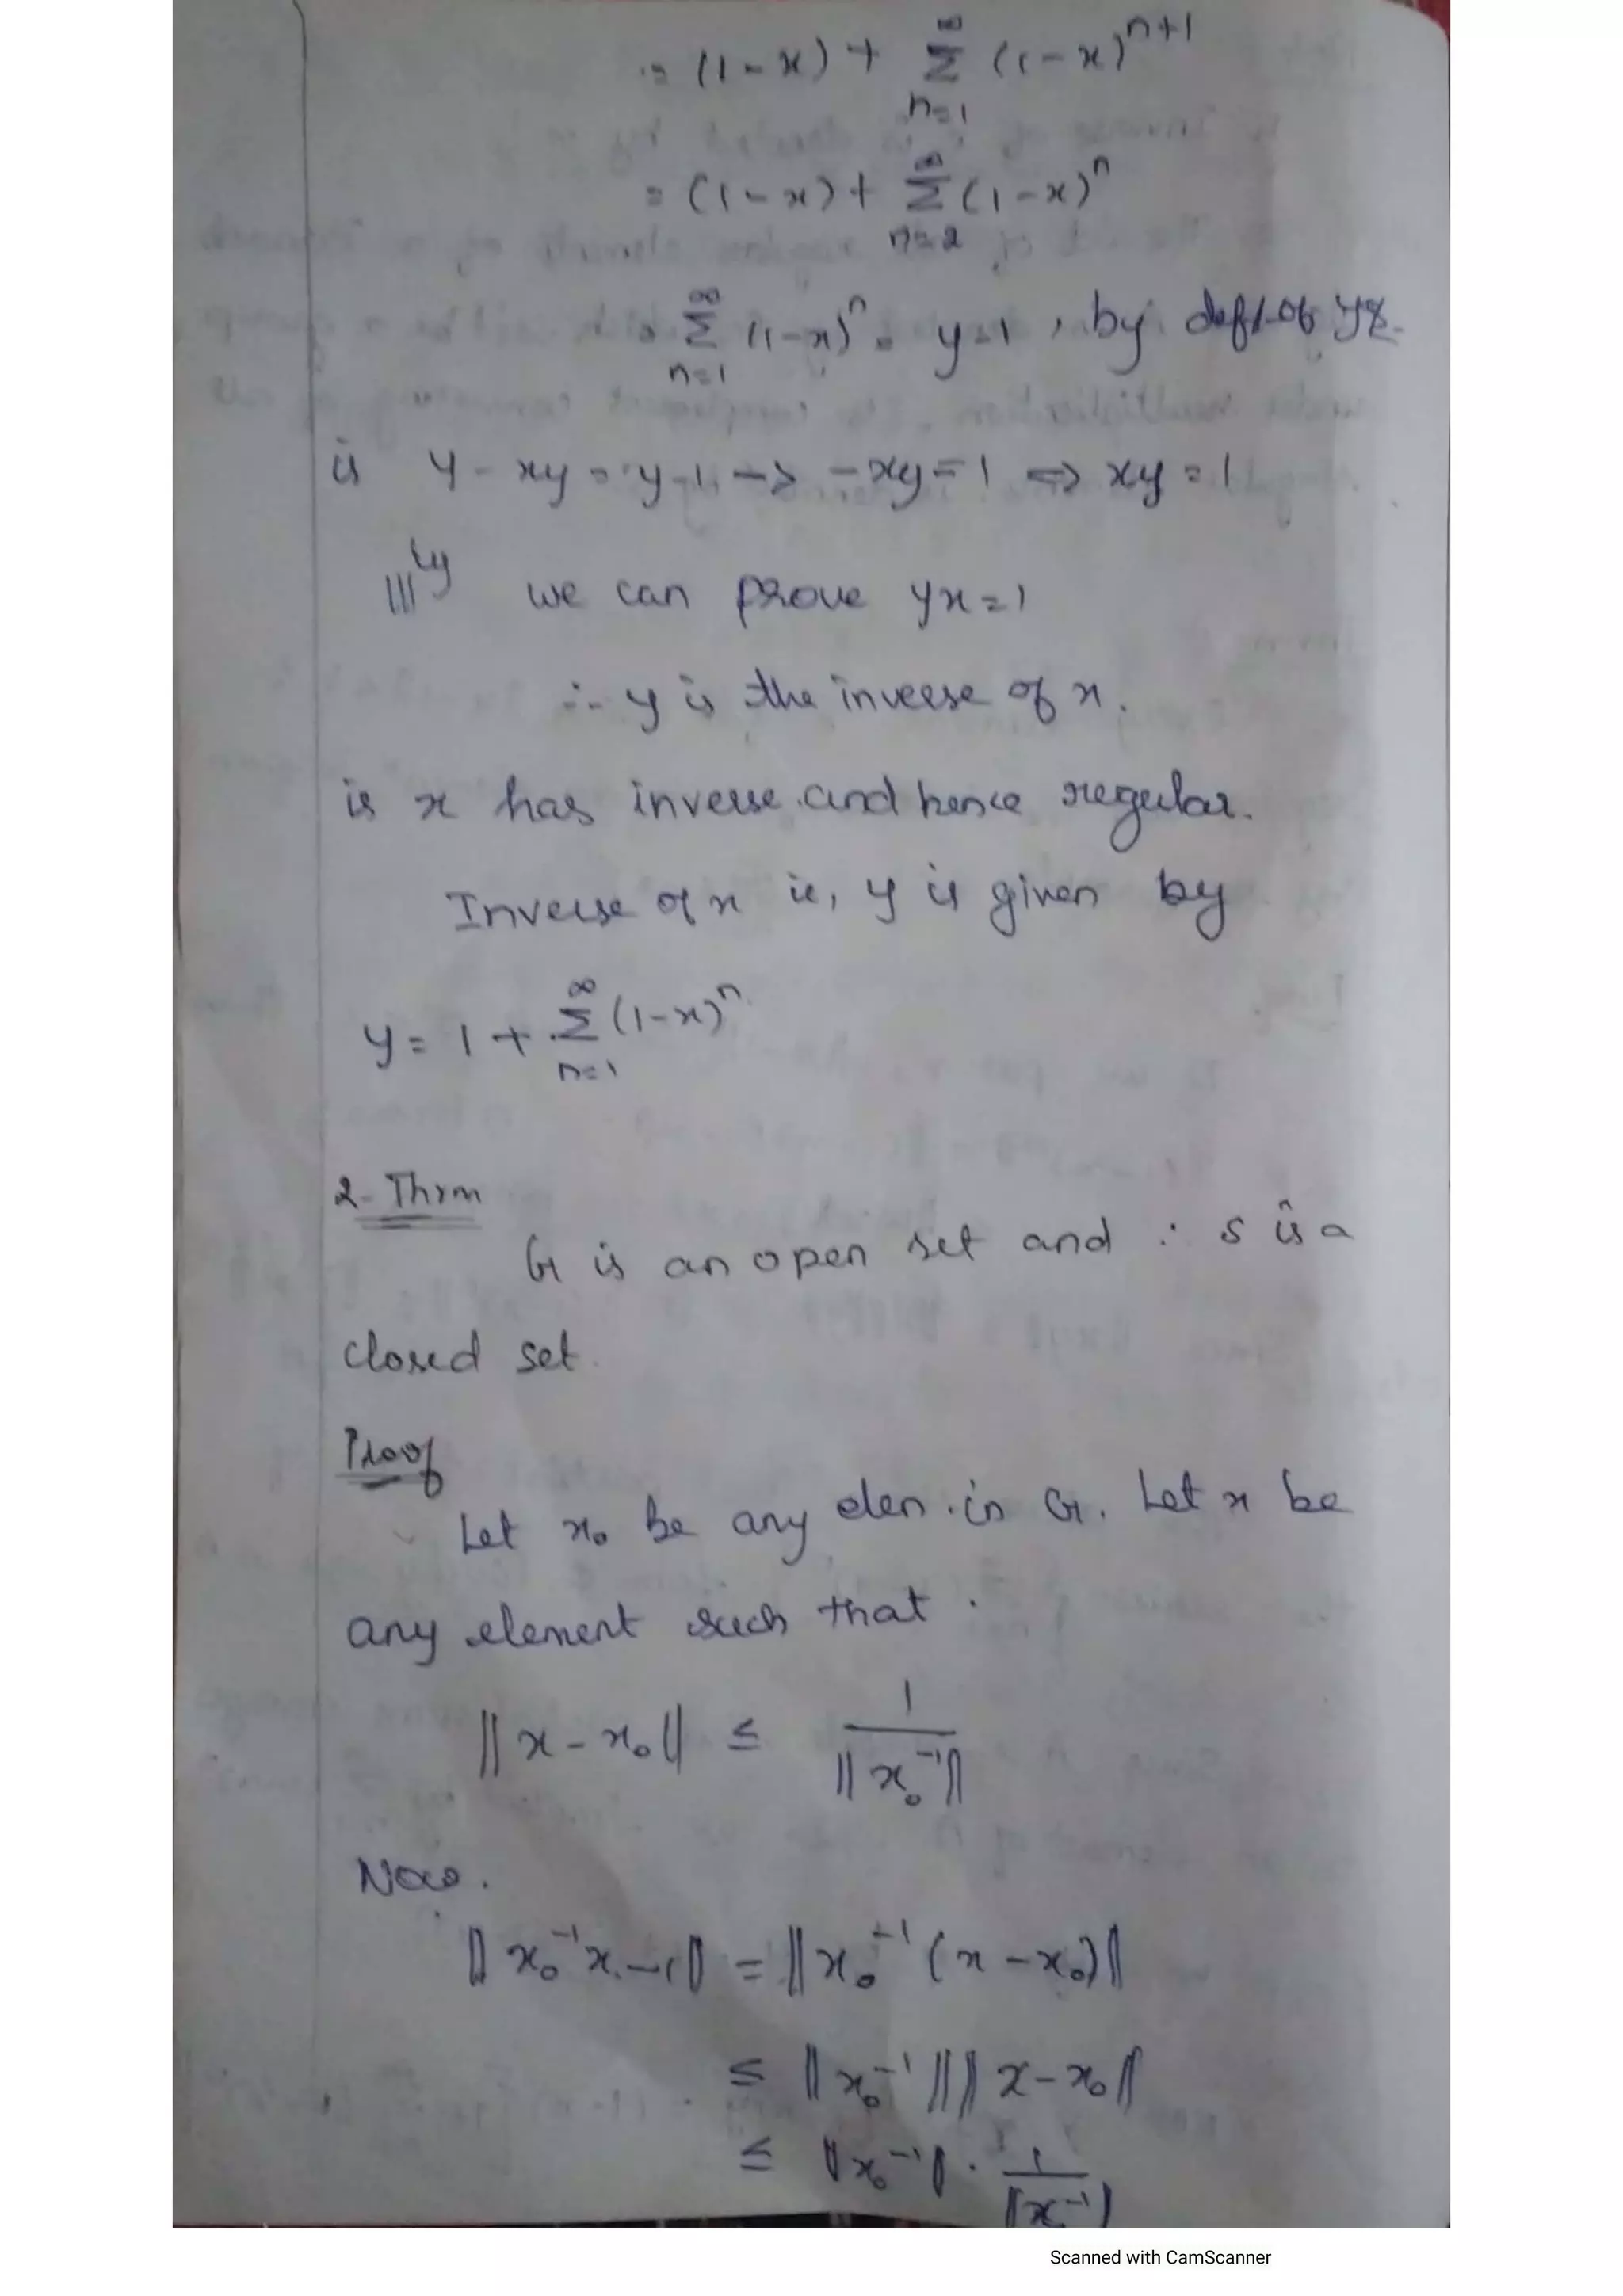 = (1-x) + ∞∑n=1 (1-x)^n+1
= (1-x) + ∞∑n=2 (1-x)^n
= ∞∑n=1 (1-x)^n = y-1, by def/-of
is y - xy = y-1 -> -xy = 1 => xy = 1
|||ly we can prove yx = 1
∴ y is the inverse of x.
is x has inverse and hence regular.
Inverse of x ie, y is given by
y = 1 + ∞∑n=1 (1-x)^n
2. Thrm
G is an open set and ∴ S is a
closed set
Proof
Let x₀ be any elen. in G. Let x be
any element such that
||x - x₀|| ≤ 1/||x₀⁻¹||
Now.
||x₀⁻¹x - 1|| = ||x₀⁻¹(x - x₀)||
≤ ||x₀⁻¹|| ||x - x₀||
≤ ||x₀⁻¹|| . 1/||x⁻¹||
Scanned with CamScanner